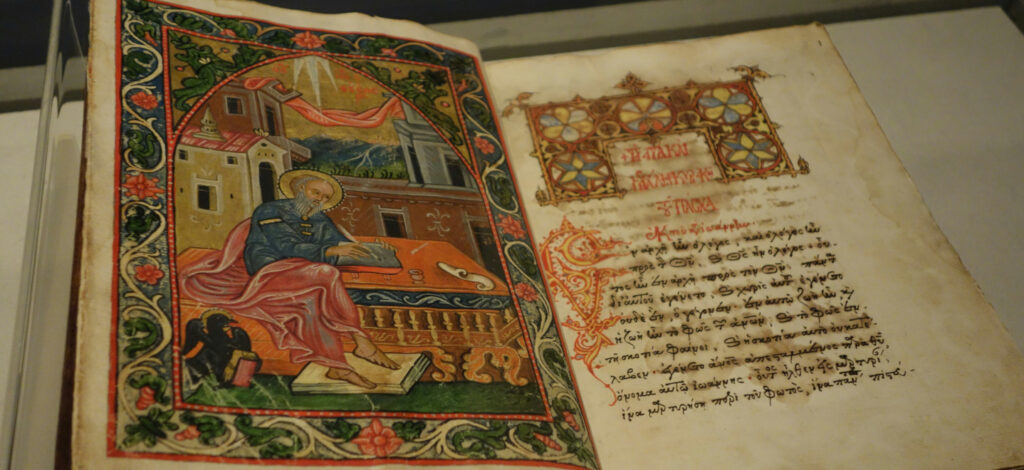 + Τῇ ἁγίᾳ καὶ
μεγάλῃ κυριακῇ
τοῦ Πάσχα
Ἐκ τοῦ κατὰ Ἰωάννην
Ἐν ἀρχῇ ἦν ὁ λόγος, καὶ ὁ λόγος ἦν
πρὸς τὸν Θν. καὶ Θς ἦν ὁ λόγος. οὗ
τος ἦν ἐν ἀρχῇ πρὸς τὸν Θν. πάντα
δι' αὐτοῦ ἐγένετο. καὶ χωρὶς αὐτοῦ ἐγένετο
οὐδὲ ἓν ὃ γέγονεν. ἐν αὐτῷ ζωὴ ἦν. καὶ
ἡ ζωὴ ἦν τὸ φῶς τῶν ἀνων. καὶ τὸ φῶς ἐν
τῇ σκοτίᾳ φαίνει. καὶ ἡ σκοτία αὐτὸ οὐ κατέ
λαβεν. ἐγένετο ἄνος ἀπεσταλμένος παρὰ Θυ
ὄνομα αὐτῷ ἰωάννης. οὗτος ἦλθεν εἰς μαρτυρί
ἵνα μαρτυρήσῃ περὶ τοῦ φωτός, ἵνα πάντες πιστεύ